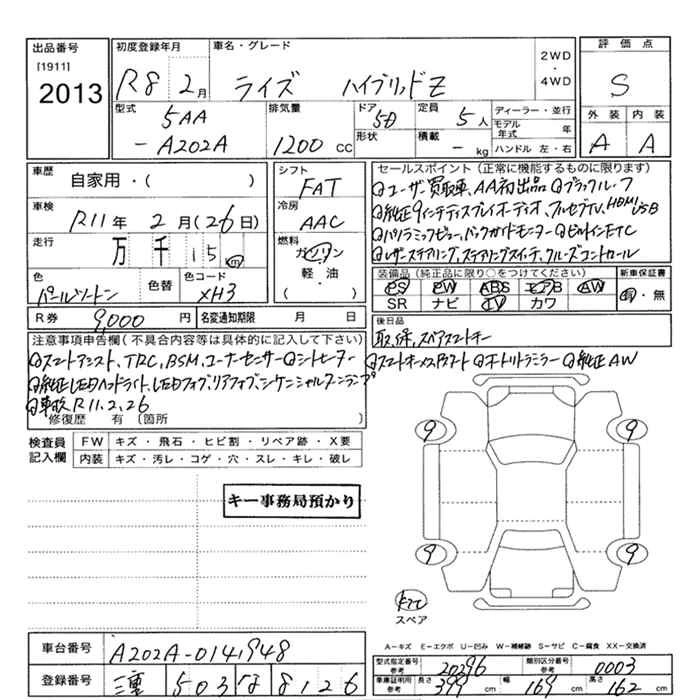 出品番号
[1911]
2013
初度登録年月
R8 2月
車名・グレード
ライズ ハイブリッドZ
2WD
・
4WD
評価点
S
外装 内装
A A
型式
5AA
-A202A
排気量
1200 cc
ドア
5D
形状
定員
5人
積載
- kg
ディーラー・並行
モデル年式 年
ハンドル 左・右
車歴
自家用・( )
車検
R11年 2月(26日)
走行
万 千 15 m
色
パールツートン
色替
色コード
XH3
シフト
FAT
冷房
AAC
燃料
ガソリン
軽・油
( )
R券 9,000 円
名変通知期限 月 日
セールスポイント(正常に機能するものに限ります)
ユーザー買取車、AA初出品 ブラックルーフ
純正9インチディスプレイオーディオ、フルセグTV、HDMI USB
パノラミックビュー、バックガイドモニター ビルトインETC
レザーステアリング、ステアリングスイッチ、クルーズコントロール
装備品(純正品に限り○をつけてください)
PS PW ABS エアB AW
SR ナビ TV カワ
新車保証書
有・無
後日品
取、保、スペアスマートキー
注意事項申告欄(不具合内容等は具体的に記入して下さい)
スマートアシスト、TRC、BSM、コーナーセンサー シートヒーター
スマートキー×プッシュスタート オートリトラミラー 純正AW
純正LEDヘッドライト、LEDフォグ、リアフォグ、シーケンシャルターンランプ
車検R11.2.26
修復歴 有 〔箇所 〕
検査員
記入欄
FW キズ・飛石・ヒビ割・リペア跡・X要
内装 キズ・汚レ・コゲ・穴・スレ・キレ・破レ
キー事務局預かり
9 9
9 9
スペア
A-キズ E-エクボ U-凹み W-補修跡 S-サビ C-腐食 XX-交換済
車台番号 A202A-0141948
登録番号 三重 503 な 8126
型式指定番号
参考 20296
類別区分番号
参考 0003
車庫証明用
参考
長さ 399 cm
幅 169 cm
高さ 162 cm